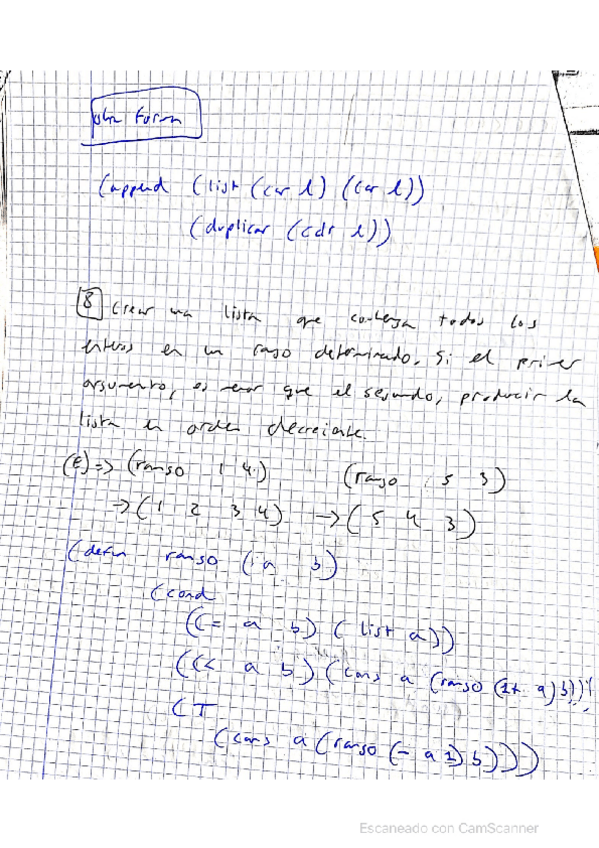 otra forma
(append (list (car l) (car l))
(duplicar (cdr l)))
8 Crear una lista que contenga todos los
enteros en un rango determinado. Si el primer
argumento, es menor que el segundo, producir la
lista en orden decreciente.
(E) => (rango 1 4) (rango 5 3)
-> (1 2 3 4) -> (5 4 3)
(defun rango (a b)
(cond
((= a b) (list a))
((< a b) (cons a (rango (1+ a) b)))
(T
(cons a (rango (- a 1) b))))
Escaneado con CamScanner